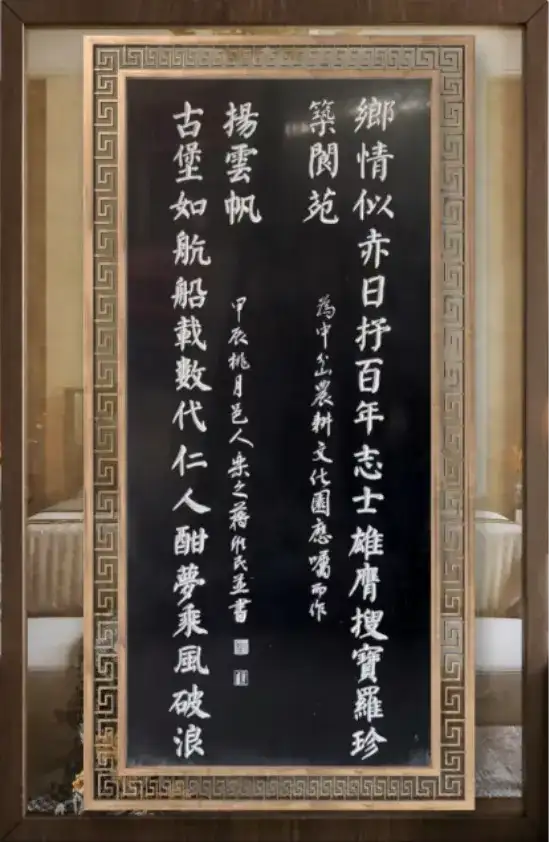 鄉情似赤日抒百年志士雄膺搜寶羅珍
築閬苑
為中岙農耕文化園應囑而作
古堡如航船載數代仁人酣夢乘風破浪
揚雲帆
甲辰桃月邑人樂之蔣民並書